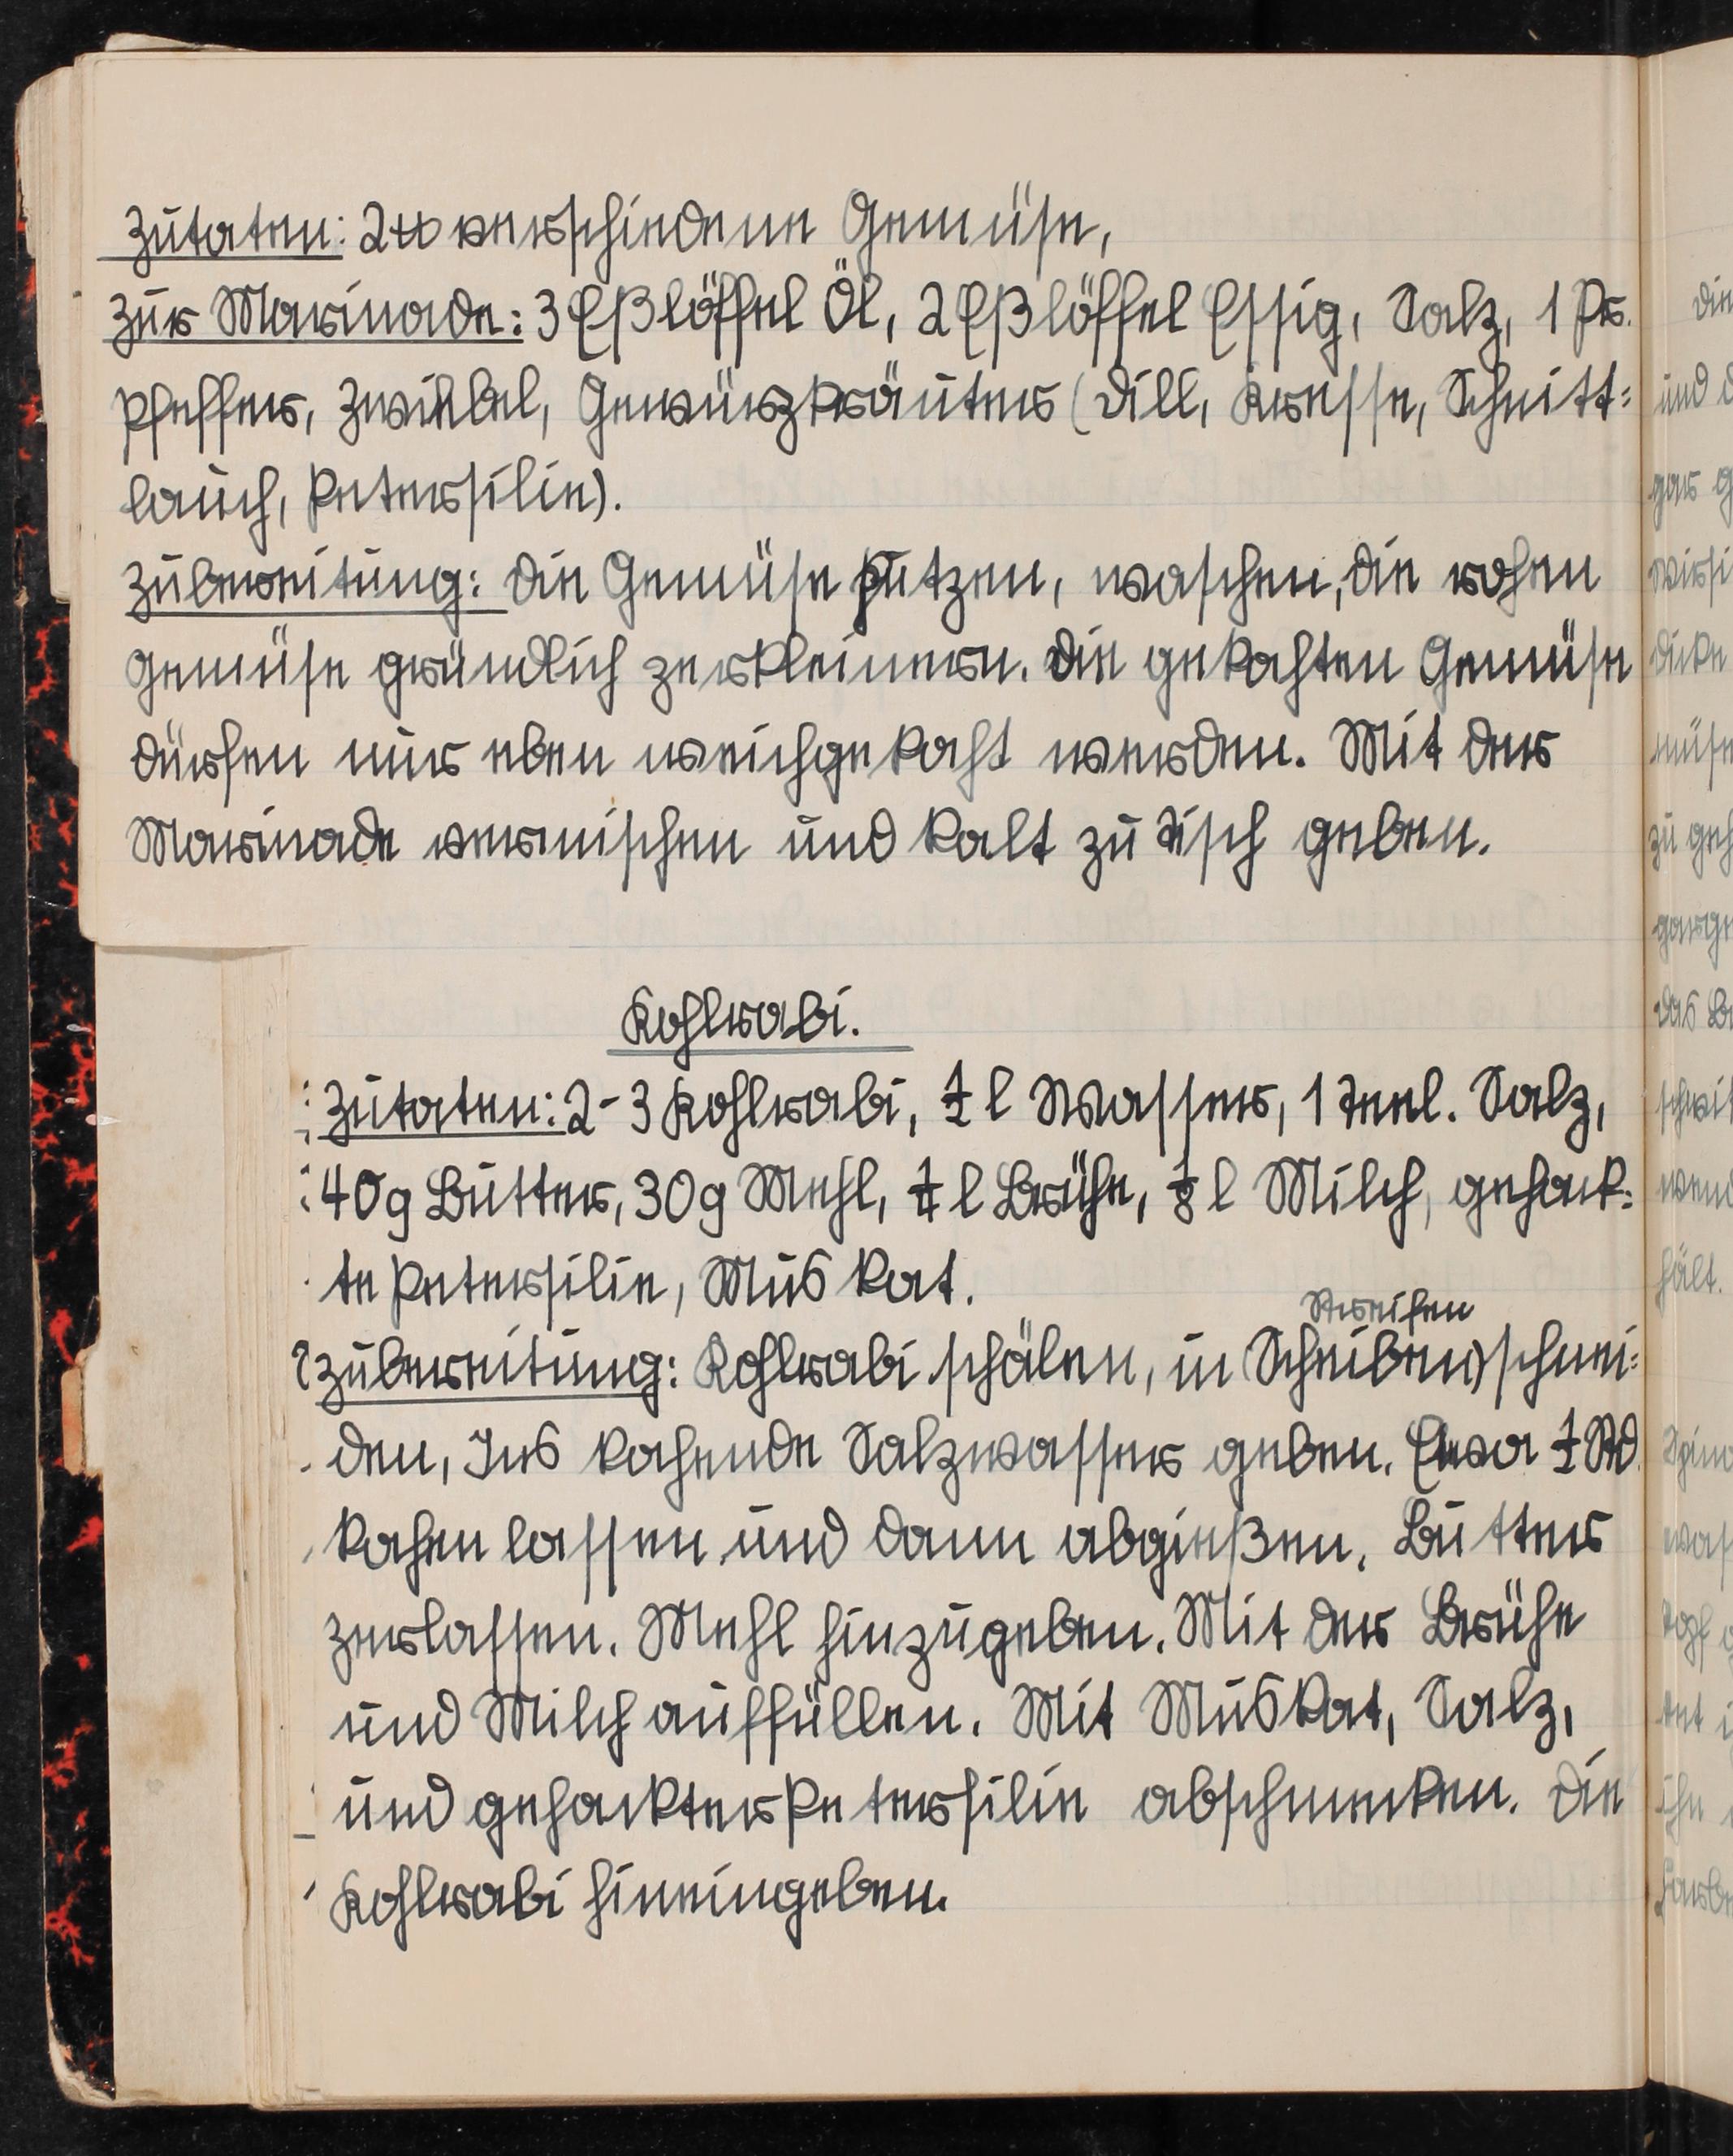 Zutaten: 2 ℔ verschiedene Gemüse,
Zur Marinade: 3 Eßlöffel Öl, 2 Eßlöffel Essig, Salz, 1 Pr.
Pfeffer, Zwiebel, Gewürzkräuter (Dill, Kresse, Schnitt=
lauch, Petersilie).
Zubereitung: Die Gemüse putzen, waschen, die rohen
Gemüse gründlich zerkleinern. Die gekochten Gemüse
dürfen nur eben weichgekocht werden. Mit der
Marinade vermischen und kalt zu Tisch geben.
Kohlrabi.
Zutaten: 2-3 Kohlrabi, ½ l Wasser, 1 Teel. Salz,
40g Butter, 30g Mehl, ¼ l Brühe, ⅛ l Milch, gehack=
te Petersilie, Muskat.
Streifen
Zubereitung: Kohlrabi schälen, in (Scheiben) schnei=
den, Ins kochende Salzwasser geben. Etwa ½ Std.
kochen lassen und dann abgießen. Butter
zerlassen. Mehl hinzugeben. Mit der Brühe
und Milch auffüllen. Mit Muskat, Salz,
und gehackter Petersilie abschmecken. Die
Kohlrabi hineingeben.